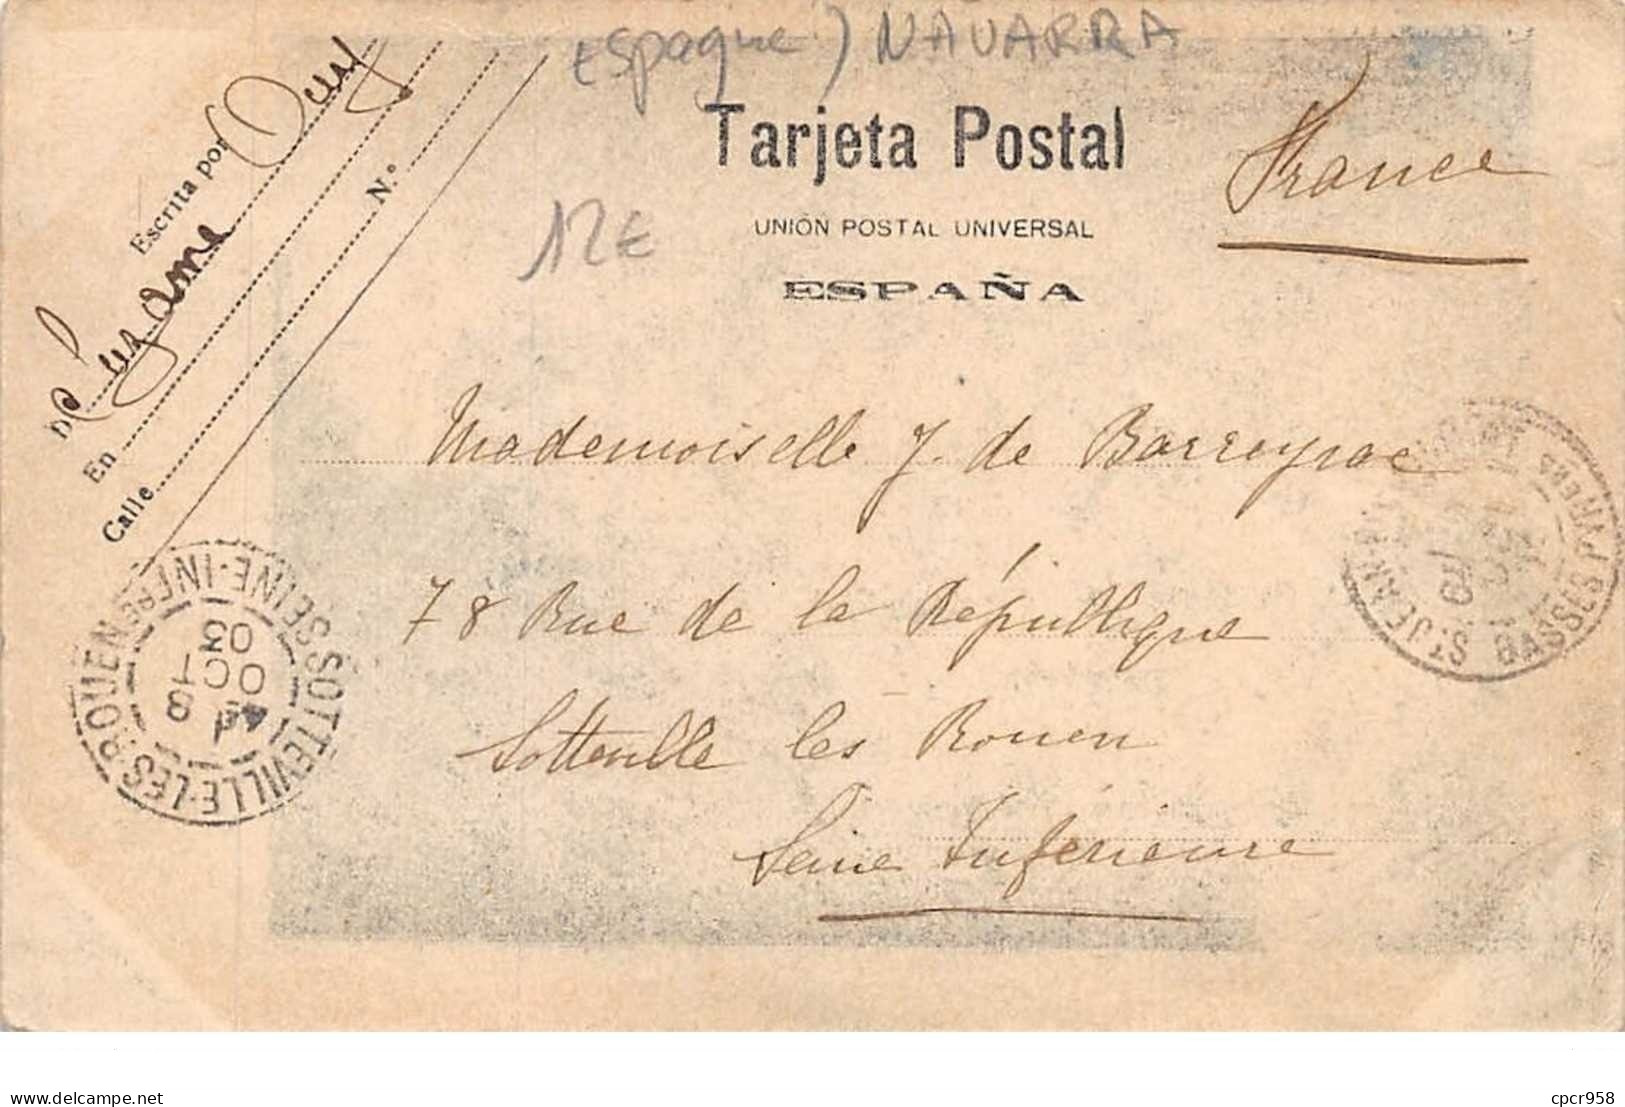 Espagne) NAVARRA
Tarjeta Postal
France
UNIÓN POSTAL UNIVERSAL
12€
ESPAÑA
Escrita por
D.
En
Calle
N.º
Mademoiselle J. de Barreyrac
78 Rue de la République
Sotteville les Rouen
Seine Inférieure
SOTTEVILLE-LES-ROUEN
SEINE-INFRE
18
OCT
03
BASSES PYRENEES
cpcr958